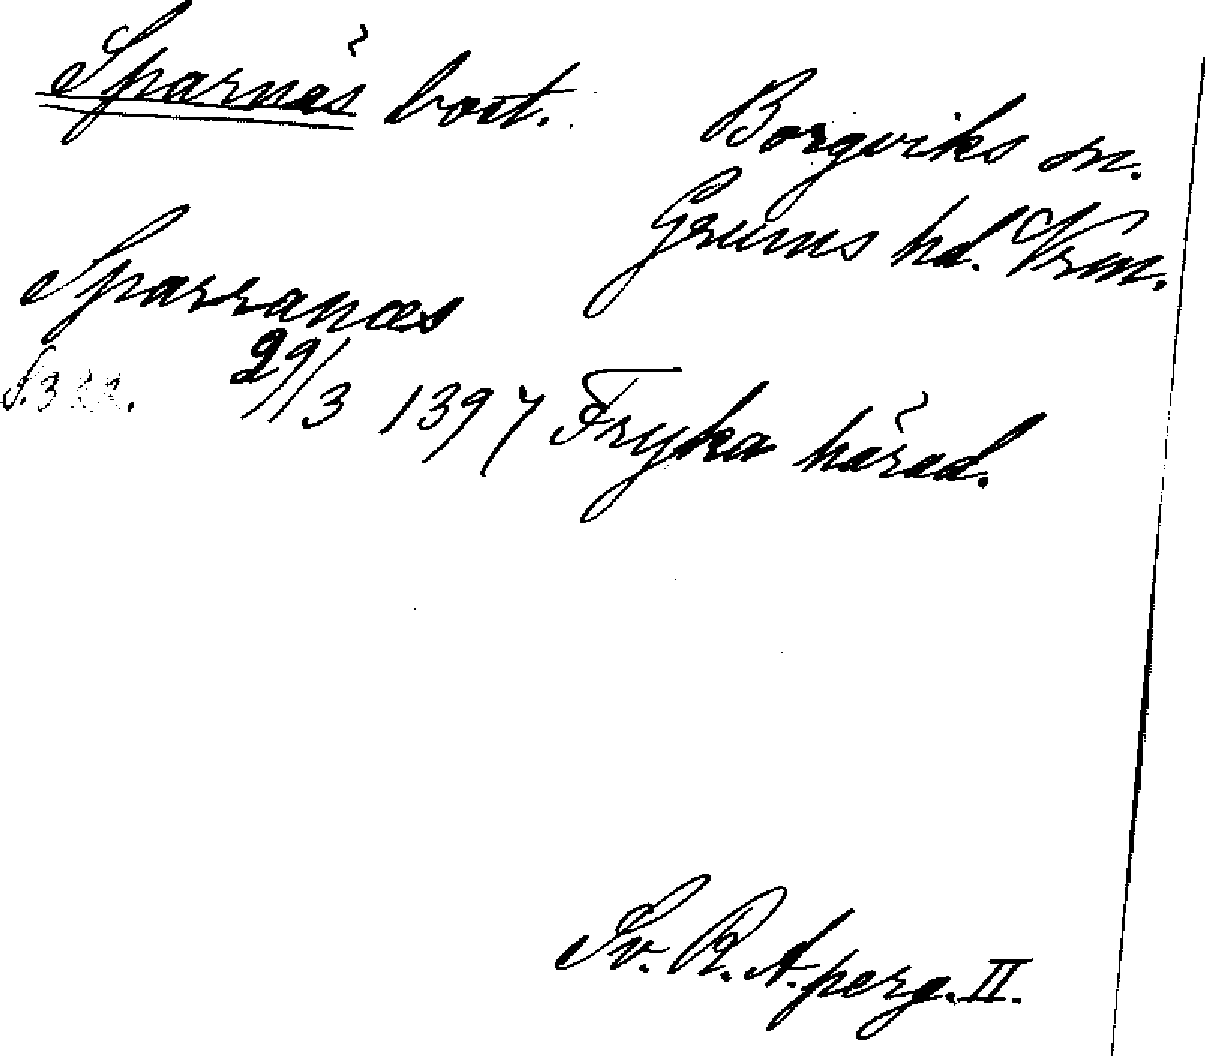 Sparnäs bost.
Borgviks sn.
Grums hd. Vrm.
Sparranæs
S. 322. 29/3 1397 Fryka härad.
Sv. R. A. perg. II.